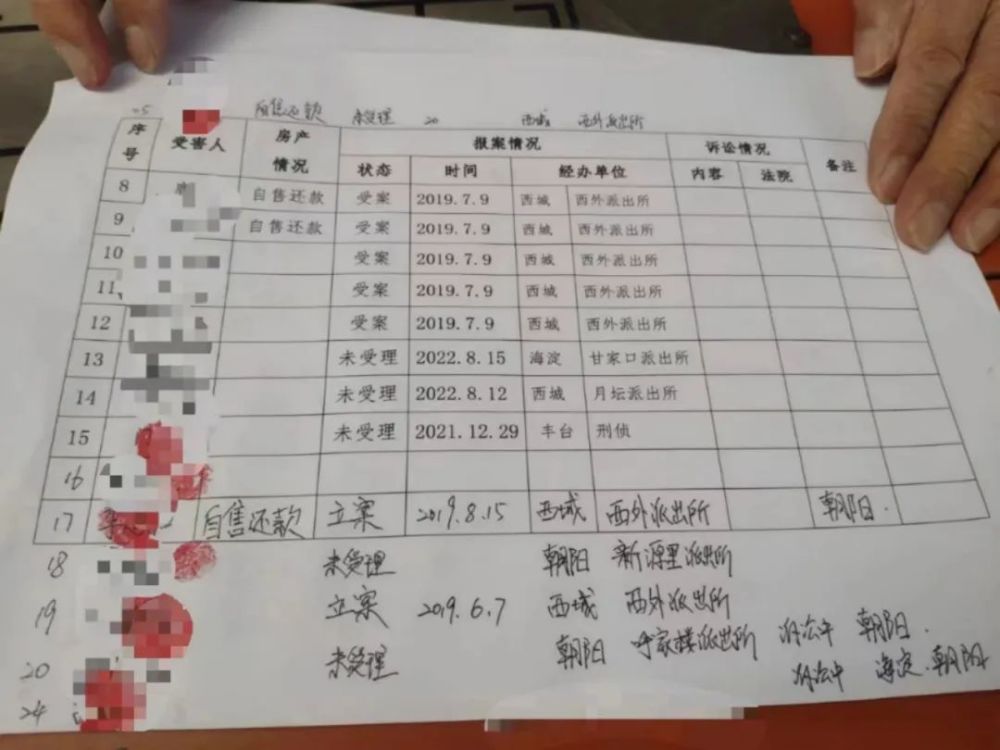 自售还款 未受理 20 西城 西外派出所
序号 受害人 房产情况 报案情况 诉讼情况 备注
状态 时间 经办单位 内容 法院
8 自售还款 受案 2019.7.9 西城 西外派出所
9 自售还款 受案 2019.7.9 西城 西外派出所
10 受案 2019.7.9 西城 西外派出所
11 受案 2019.7.9 西城 西外派出所
12 受案 2019.7.9 西城 西外派出所
13 未受理 2022.8.15 海淀 甘家口派出所
14 未受理 2022.8.12 西城 月坛派出所
15 未受理 2021.12.29 丰台 刑侦
16
17 自售还款 立案 2019.8.15 西城 西外派出所 朝阳
18 未受理 朝阳 新源里派出所
19 立案 2019.6.7 西城 西外派出所
20 未受理 朝阳 呼家楼派出所 诉讼中 朝阳.
24 诉讼中 海淀.朝阳